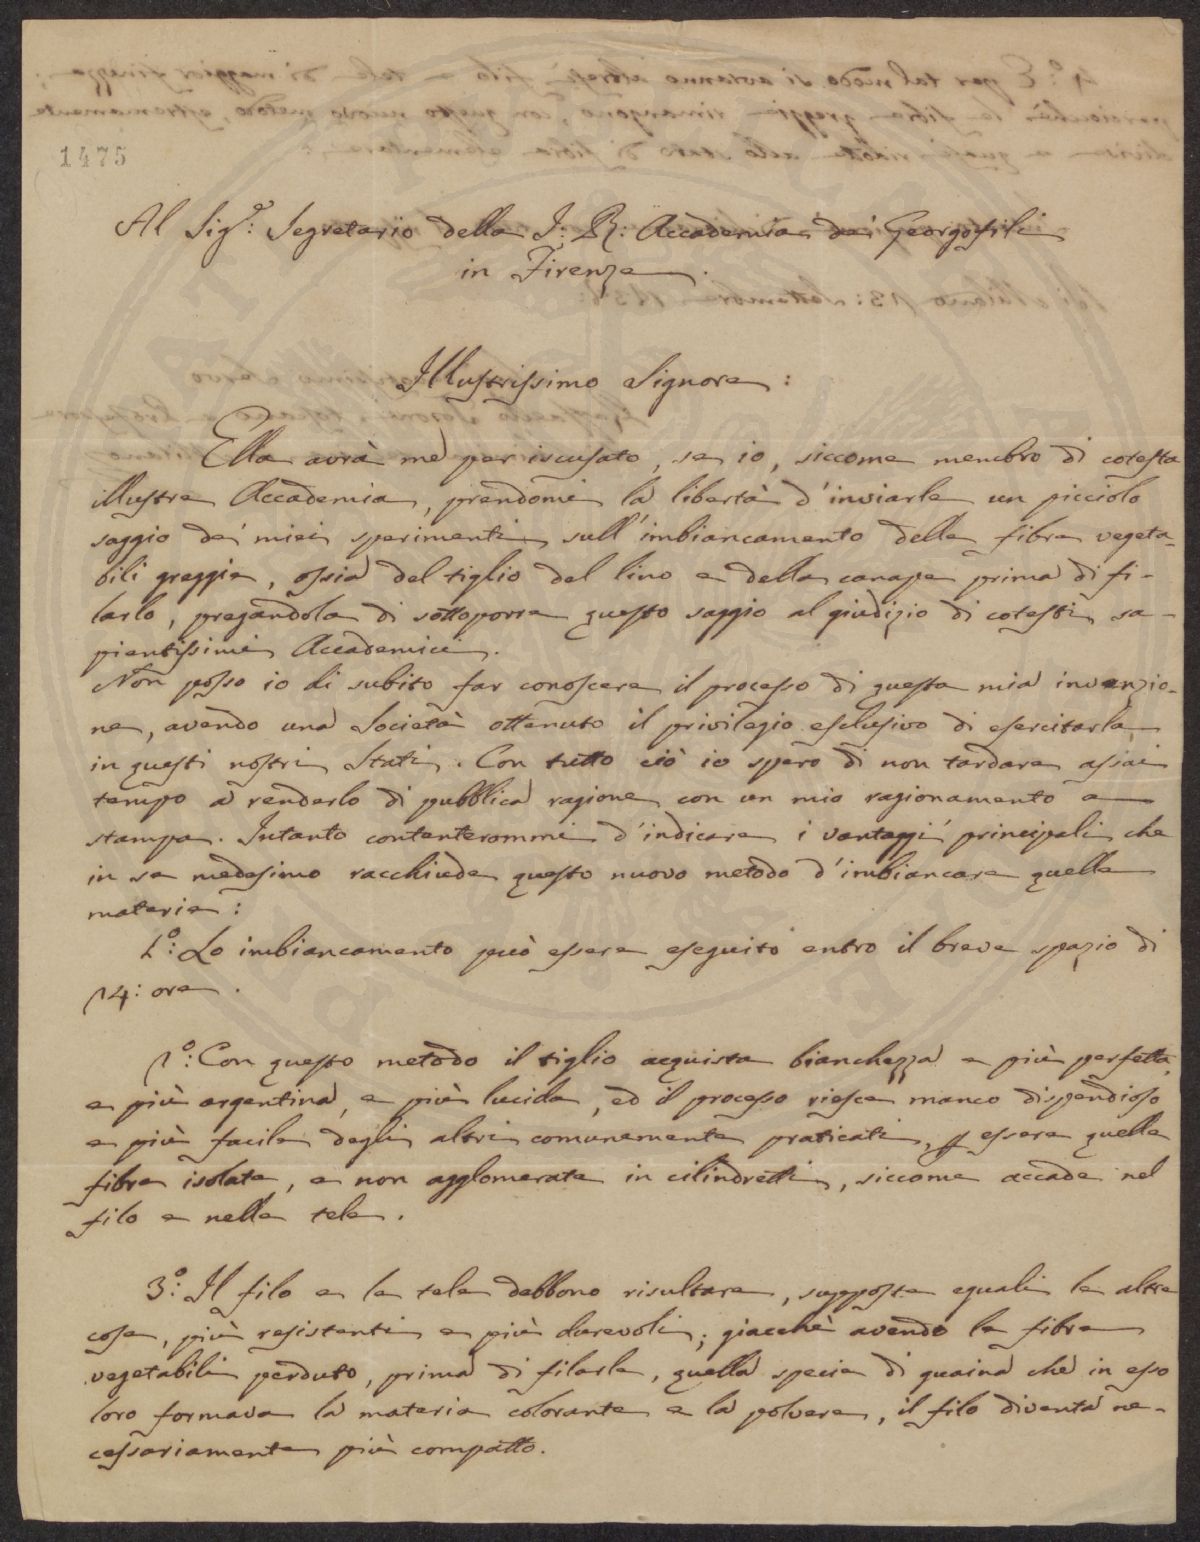 1475
Al Sig.r: Segretario della I: R: Accademia de' Georgofili
in Firenze.
Illustrissimo Signore:
Ella avrà me per iscusato, se io, siccome membro di cotesta
illustre Accademia, prendomi la libertà d'inviarle un picciolo
saggio de' miei sperimenti sull'imbiancamento delle fibre vegeta-
bili greggie, ossia del tiglio del lino e della canape prima di fi-
larlo, pregandola di sottoporre questo saggio al giudizio di cotesti sa-
pientissimi Accademici.
Non posso io di subito far conoscere il processo di questa mia invenzio-
ne, avendo una Società ottenuto il privilegio esclusivo di esercitarla
in questi nostri Stati. Con tutto ciò io spero di non tardare assai
tempo a renderlo di pubblica ragione con un mio ragionamento a
stampa. Intanto contenterommi d'indicare i vantaggi principali che
in se medesimo racchiude questo nuovo metodo d'imbiancare quelle
materie:
1.º: Lo imbiancamento può essere eseguito entro il breve spazio di
14: ore.
2.º: Con questo metodo il tiglio acquista bianchezza e più perfetta,
e più argentina, e più lucida, ed il processo riesce manco dispendioso
e più facile degli altri comunemente praticati, p essere quelle
fibre isolate, e non agglomerate in cilindretti, siccome accade nel
filo e nelle tele.
3.º: Il filo e le tele debbono risultare, supposte eguali le altre
cose, più resistenti e più durevoli; giacchè avendo le fibre
vegetabili perduto, prima di filarle, quella specie di guaina che in esso
loro formava la materia colorante e la polvere, il filo diventa ne-
cessariamente più compatto.